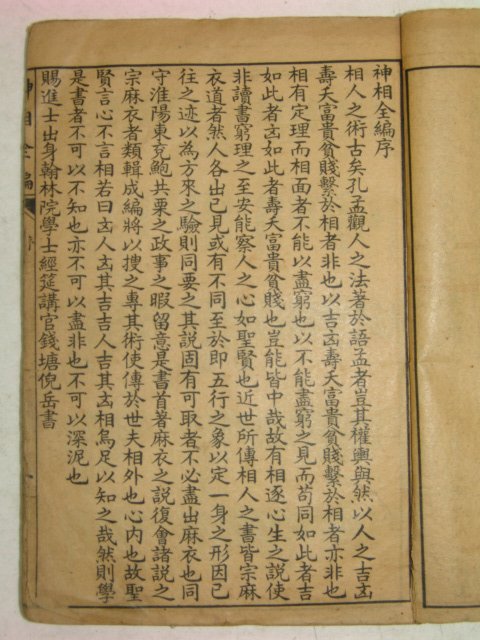 神相全編序
相人之術古矣孔孟觀人之法著於語孟者豈其權輿與然以人之吉凶
壽夭富貴貧賤繫於相者非也以吉凶壽夭富貴貧賤繫於相者亦非也
相有定理而相面者不能以盡窮也以不能盡窮之見而苟同如此者吉
如此者凶如此者壽夭富貴貧賤也豈能皆中哉故有相逐心生之說使
非讀書窮理之至安能察人之心如聖賢也近世所傳相人之書皆宗麻
衣道者然人各出己見或有不同至於即五行之象以定一身之形因已
往之迹以為方來之驗則同要之其說固有可取者不必盡出麻衣也同
守淮陽東兗鮑共栗之政事之暇留意是書首著麻衣之說復會諸說之
宗麻衣者類輯成編將以搜之專其術使傳於世夫相外也心內也故聖
賢言心不言相若曰凶人凶其吉吉人吉其凶相烏足以知之哉然則學
是書者不可以不知也亦不可以盡非也不可以深泥也
賜進士出身翰林院學士經筵講官錢塘倪岳書
神相全編
序